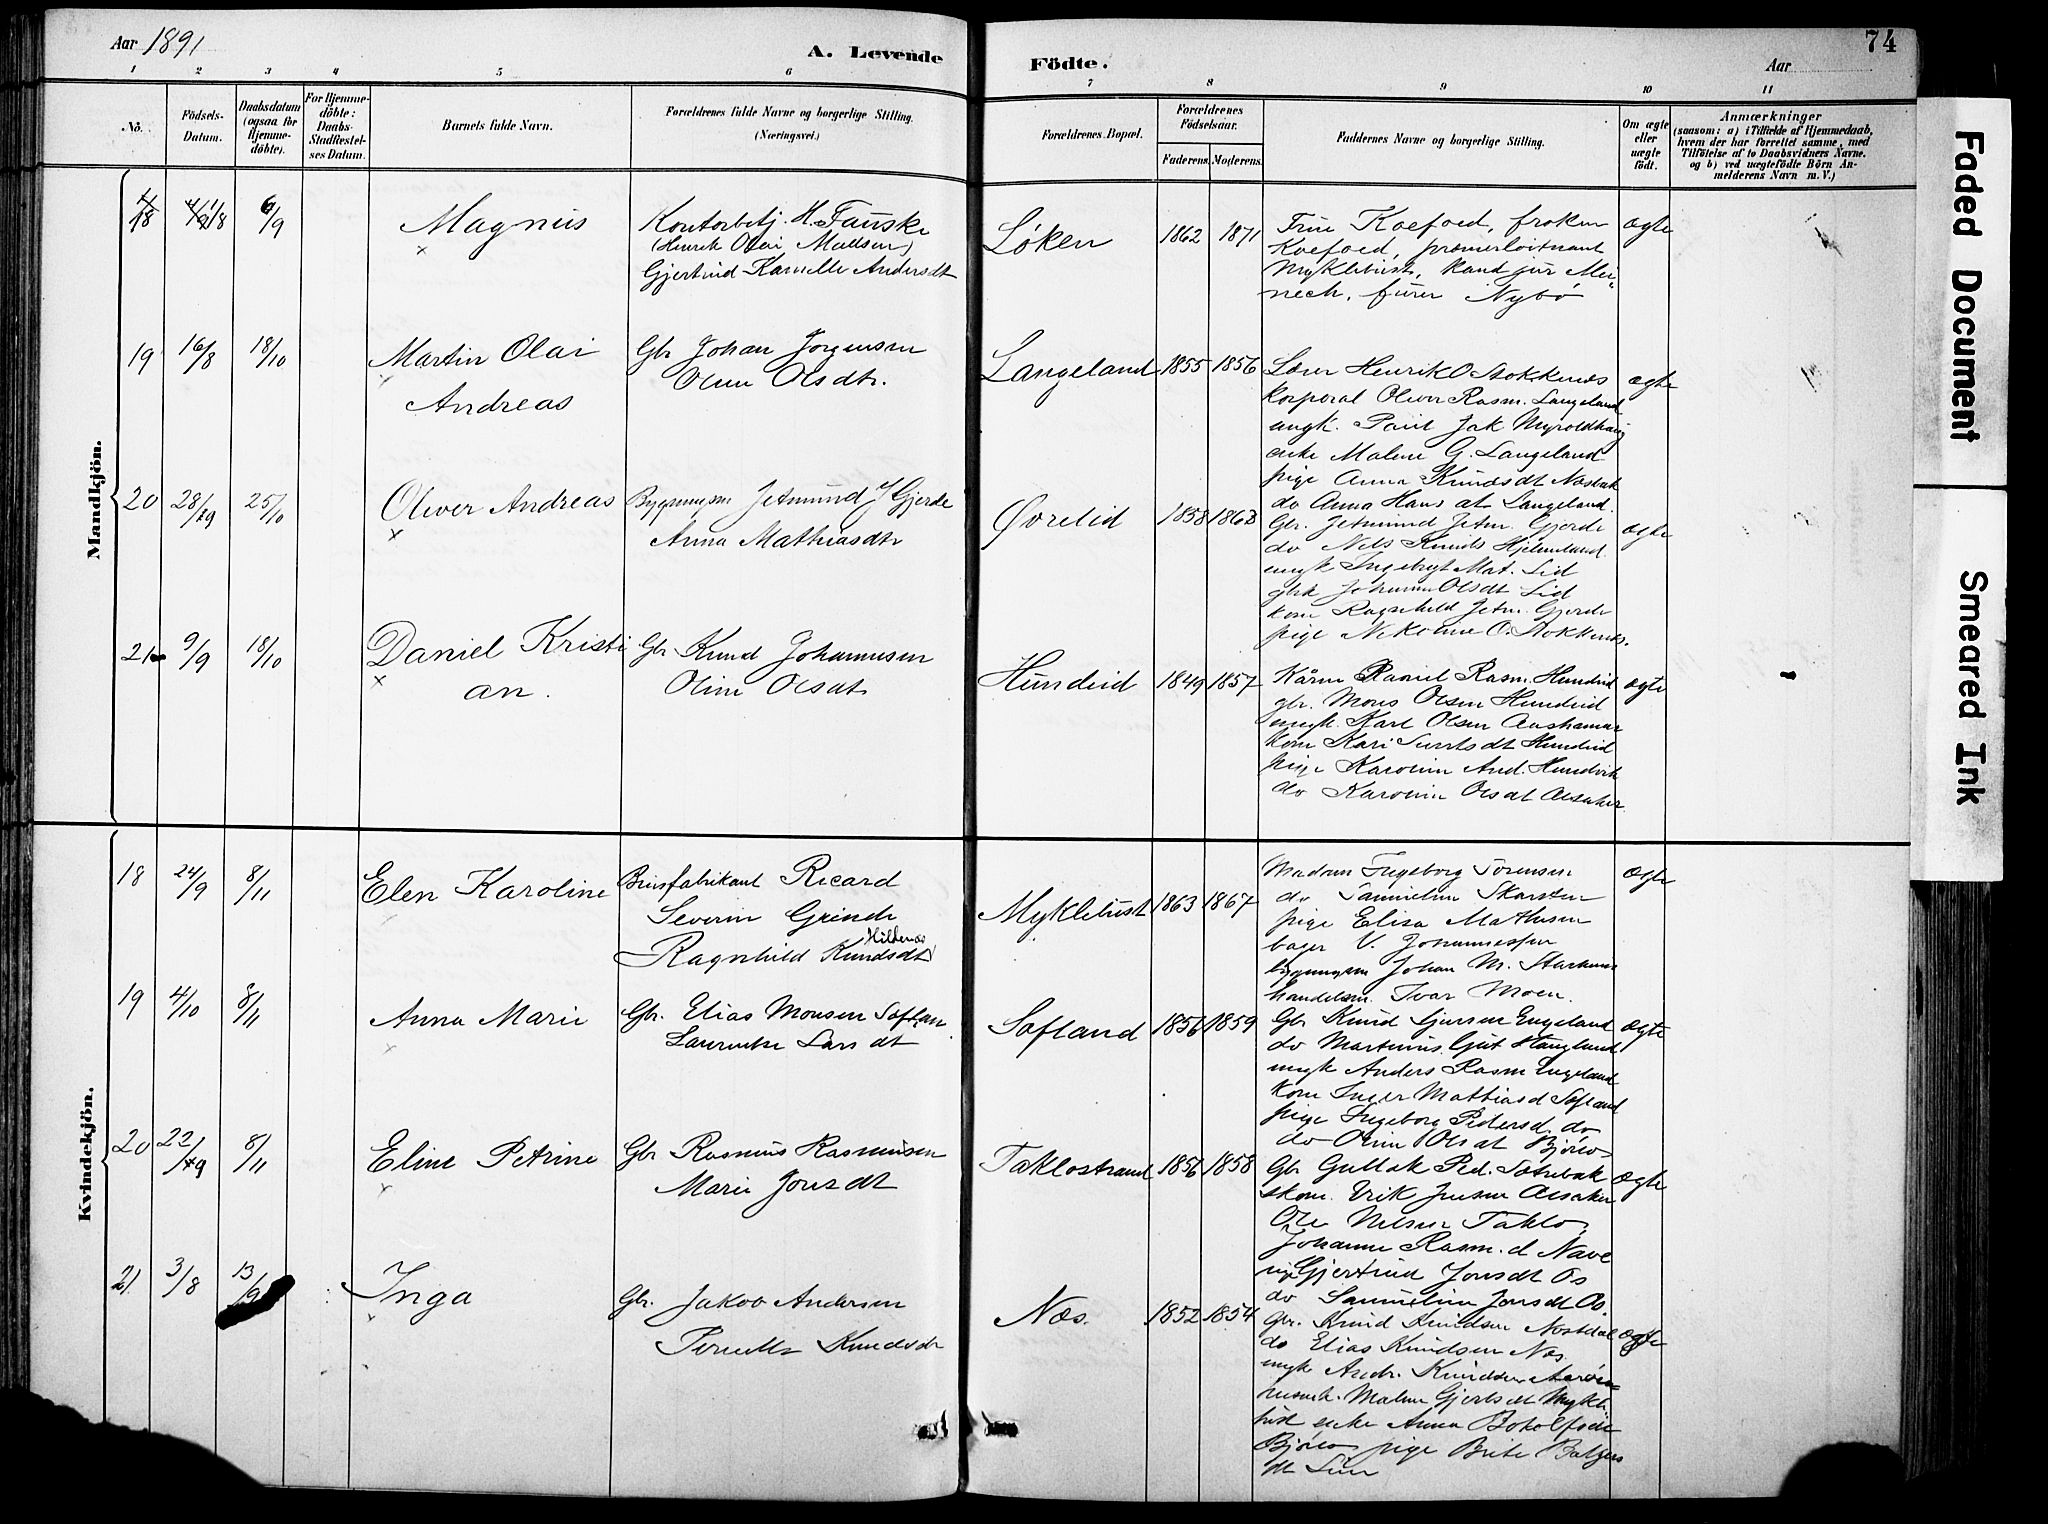 Aar 1891
A. Levende
Födte.
Aar
74
1 2 3 4 5 6 7 8 9 10 11
No.
Födsels-Datum.
Daabsdatum (ogsaa for Hjemme-döbte).
For Hjemme-döbte: Daabs-Stadfæstel-ses Datum.
Barnets fulde Navn.
Forældrenes fulde Navne og borgerlige Stilling. (Næringsvei.)
Forældrenes Bopæl.
Forældrenes Födselsaar.
Faderens. Moderens.
Faddernes Navne og borgerlige Stilling.
Om ægte eller uægte födt.
Anmærkninger
(saasom: a) i Tilfælde af Hjemmedaab,
hvem der har forrettet samme, med
Tilföielse af to Daabsvidners Navne.
og b) ved uægtefödte Börn An-
melderens Navn m. V.)
Mandkjön.
18 6/9
Magnus
Kontorbetj. H. Fauske
(Henrik Olai Madsen)
Gjertrud Kamelle Andersdt
Løken
1862 1871
Frue Koefoed, frøken
Koefoed, premierløitnant
Myklebust, kand jur Mei-
nech, furer Nybø
ægte
19 16/8 18/10
Martin Olai
Andreas
Gbr Johan Jørgensen
Oline Olsdtr.
Langeland
1855 1856
Lærer Henrik O Stokkenes
korporal Oliver Rasm. Langeland
ungk. Paul Jak Myroldhaug
enke Malene G. Langeland
pige Anna Knudsdt Nosbak
do Anna Hans dt Langeland.
ægte
20 28/9 25/10
Oliver Andreas
Bygmungsm Jetmund J Gjerde
Anna Mathiasdtr
Øvrelid
1858 1863
Gbr. Jetmund Jetm. Gjerde
do Nils Knuds Hjelmeland
ungk Ingebrgt Mat. Lid
gbrk Johanne Olsdt Lid
kone Ragnhild Jetm. Gjerde
pige Nikoline O. Stokkenes.
ægte
21 9/9 18/10
Daniel Kristi
an.
Gbr Knud Johannesen
Oline Olsdt
Hundeid
1849 1857
Kårm Daniel Rasm. Hundeid
gbr. Mons Olsen Hundeid
ungk. Karl Olsen Aashamar
kone Kari Sivertsdt Hundeid
pige Karoline And. Hundvik
do Karoline Olsdt Alsaker
ægte
Kvindekjön.
18 24/9 8/11
Elen Karoline
Brusfabrikant Ricard
Severin Grinde
Ragnhild Knudsdt Hildenes
Myklebust
1863 1867
Madam Ingeborg Sørensen
do Samueline Skarsten
pige Elisa Mathisen
bager V. Johannessen
bygmungsm Johan M. Starheim
handelsm. Ivar Moen.
ægte
19 4/10 8/11
Anna Marie
Gbr. Elias Monsen Sofland
Laurentse Larsdt
Sofland
1856 1859
Gbr Knud Gjersen Engeland
do Martinus Gut Haugland
ungk Anders Rasm Engeland
kone Inger Mathiasd Sofland
pige Ingeborg Pedersd. do
do Oline Olsdt Bjørlo
ægte
20 22/9 8/11
Eline Petrine
Gbr Rasmus Rasmussen
Marie Jonsdt
Taklostrand
1856 1858
Gbr Gullak Ped. Sætrebak
skom. Erik Jensen Alsaker
Ole Nilsen Taklo
Johanne Rasm. d Nave
pige Gjertrud Jonsdt Os
do Samueline Jonsdt Os.
ægte
21 3/8 13/9
Inga
Gbr. Jakob Andersen
Pernelle Knudsdtr
Nos.
1852 1854
Gbr. Knud Knudsen Nostdal
do Elias Knudsen Nos
ungk Andr. Knudsen
husmk. Malene Gjertsdt Mykle
bust enke Anna Bokolfsdt
Bjørlo pige Brite Balzers
dt Lien
ægte
Faded Document
Smeared Ink